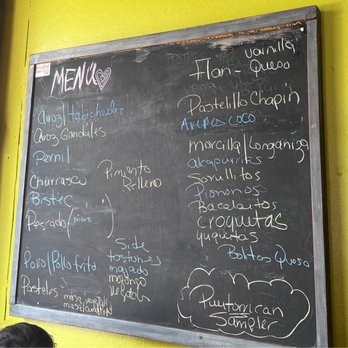 MENU
Arroz/habichuelas
Arroz Gandules
Pernil
Churrasco
Bistec
Pescado (mero)
Pollo/Pollo frito
Pasteles
Pimiento
Relleno
Side
tostones
majado
mofongo
Flan - vainilla
Queso
Pastelillo Chapin
Arepas COCO
morcilla/Longaniza
alcapurrias
Sorullitos
Pionono
Bacalaitos
croquetas
yuquitas
Bolitas Queso
Puertorrican
Sampler